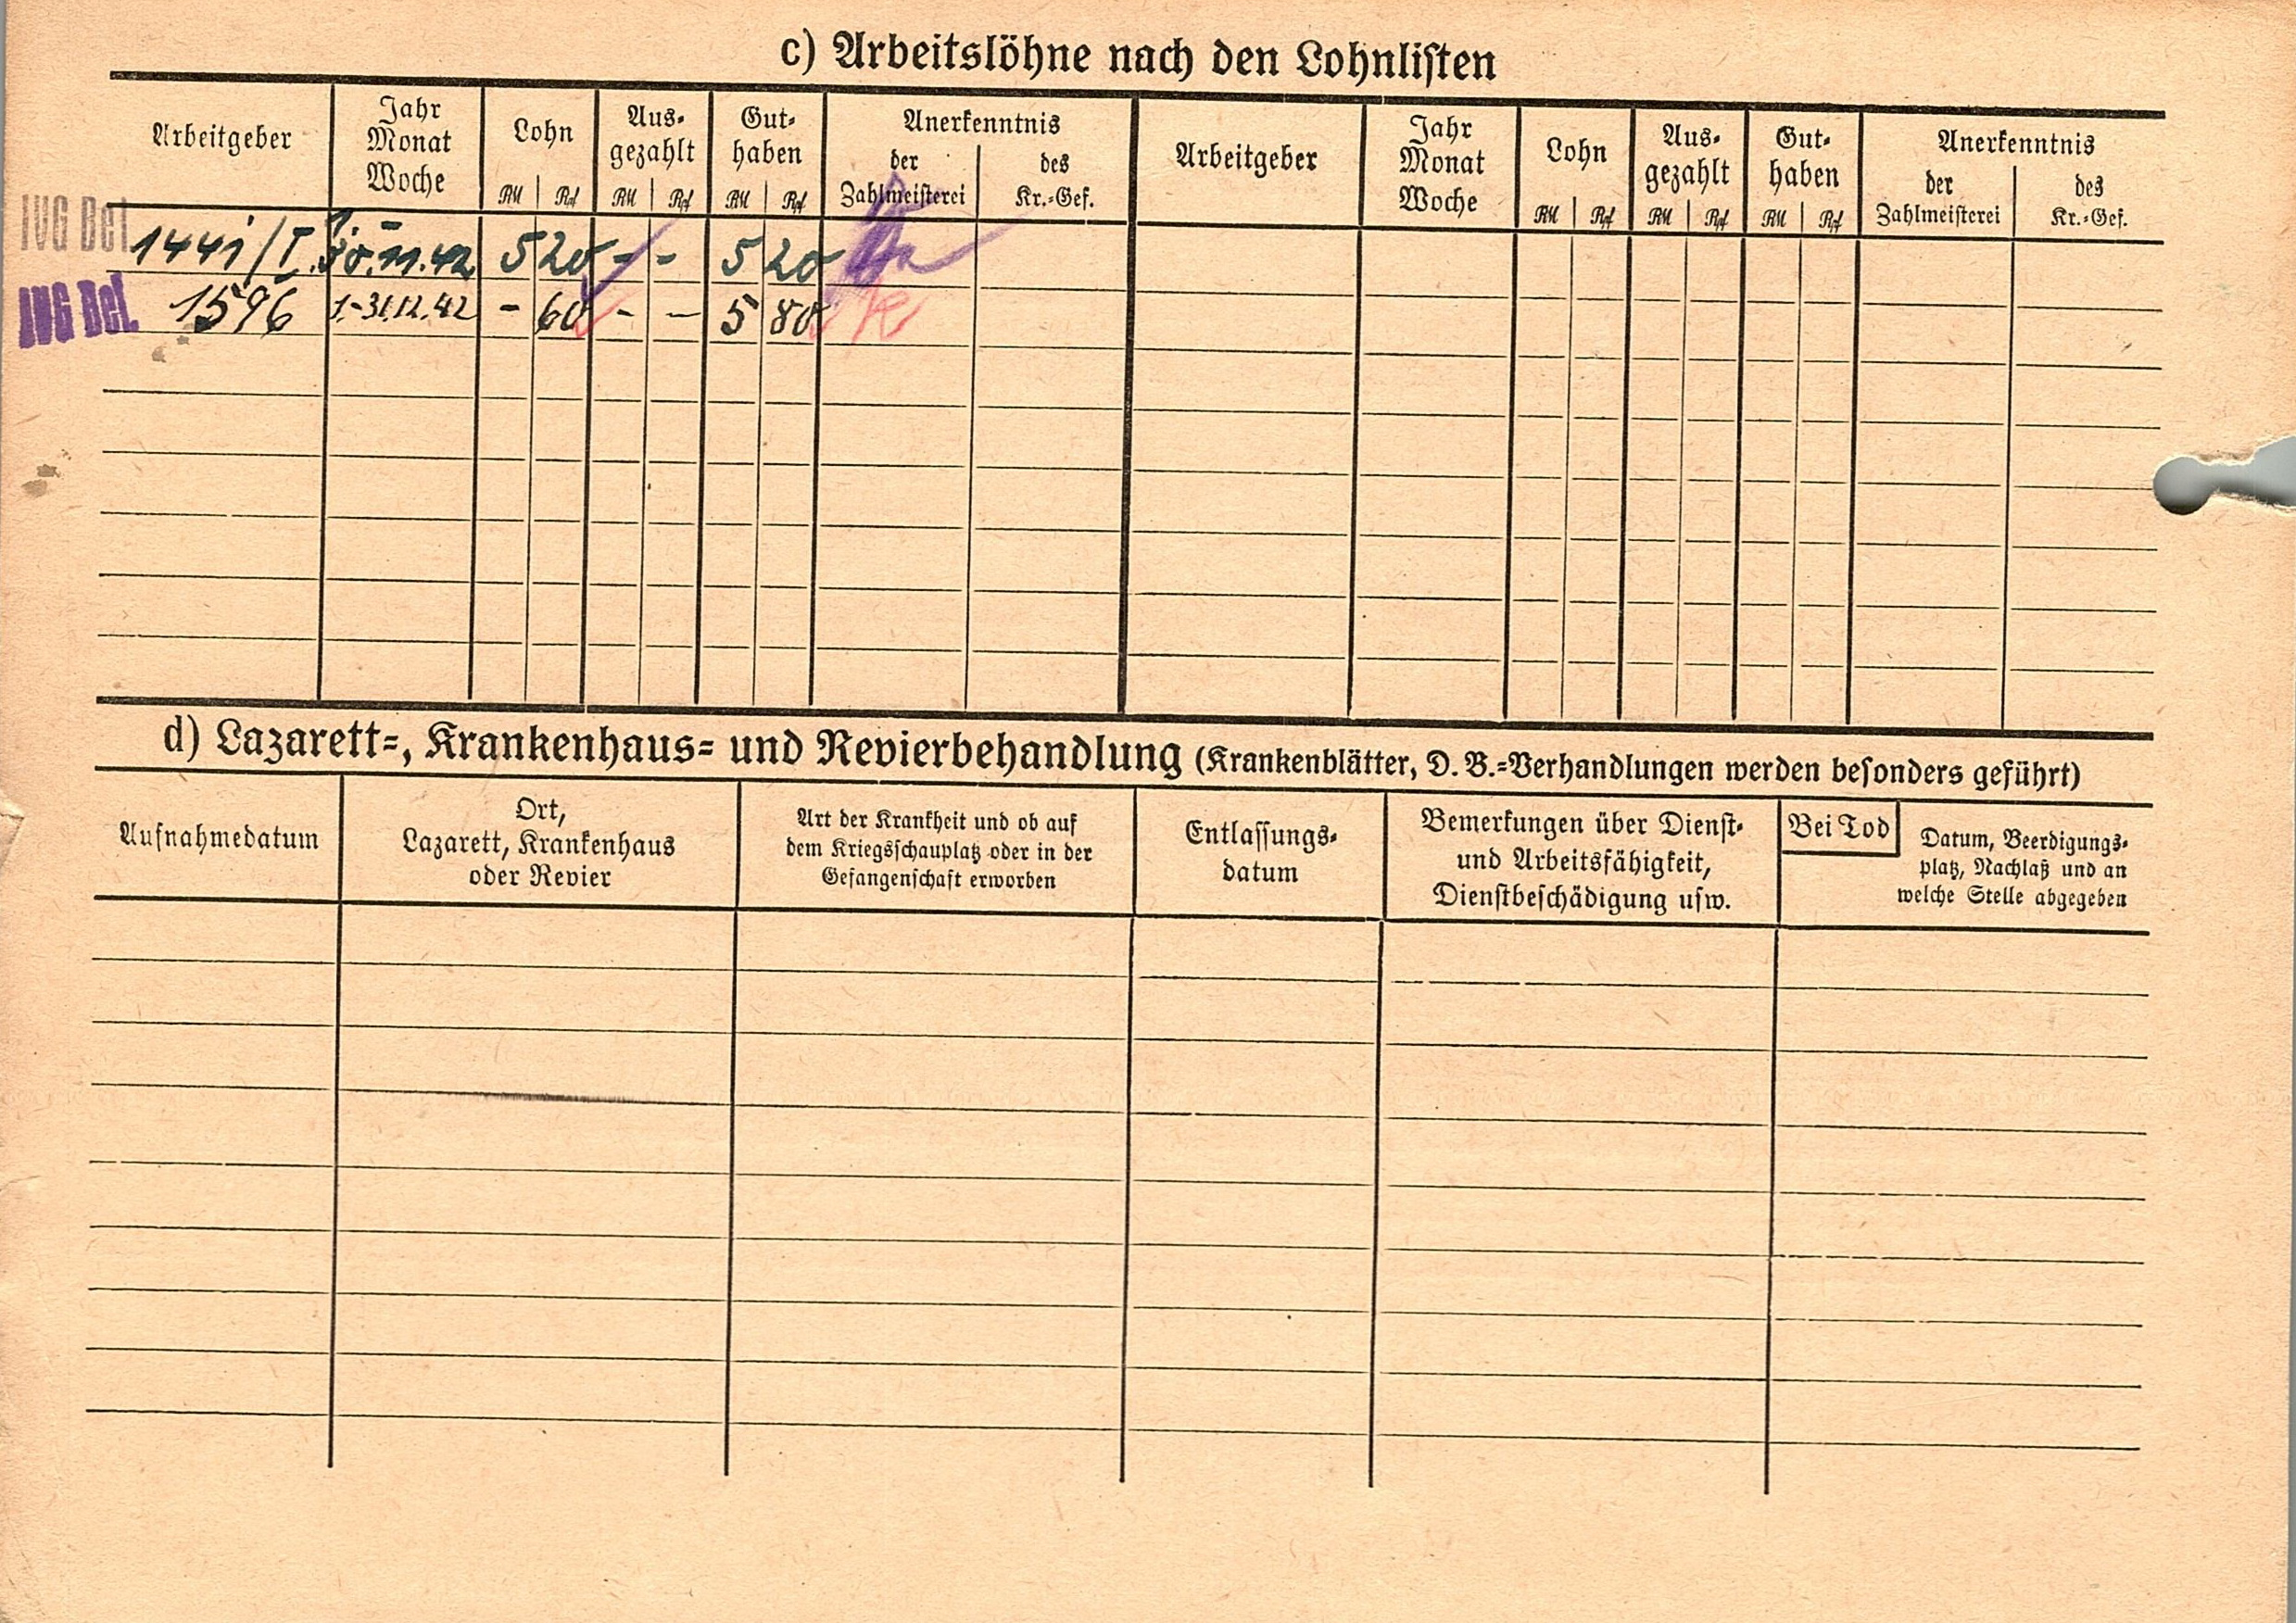 c) Arbeitslöhne nach den Lohnlisten
Arbeitgeber
Jahr
Monat
Woche
Lohn
RM Rpf
Aus-
gezahlt
RM Rpf
Gut-
haben
RM Rpf
Anerkenntnis
der
Zahlmeisterei
des
Kr.-Gef.
Arbeitgeber
Jahr
Monat
Woche
Lohn
RM Rpf
Aus-
gezahlt
RM Rpf
Gut-
haben
RM Rpf
Anerkenntnis
der
Zahlmeisterei
des
Kr.-Gef.
IVG Bel. 1441/I. 30.11.42 5 20 - - 5 20
IVG Bel. 1596 1.-31.12.42 - 60 - - 5 80
d) Lazarett-, Krankenhaus- und Revierbehandlung (Krankenblätter, D. B.-Verhandlungen werden besonders geführt)
Aufnahmedatum
Ort,
Lazarett, Krankenhaus
oder Revier
Art der Krankheit und ob auf
dem Kriegsschauplatz oder in der
Gefangenschaft erworben
Entlassungs-
datum
Bemerkungen über Dienst-
und Arbeitsfähigkeit,
Dienstbeschädigung usw.
Bei Tod
Datum, Beerdigungs-
platz, Nachlaß und an
welche Stelle abgegeben